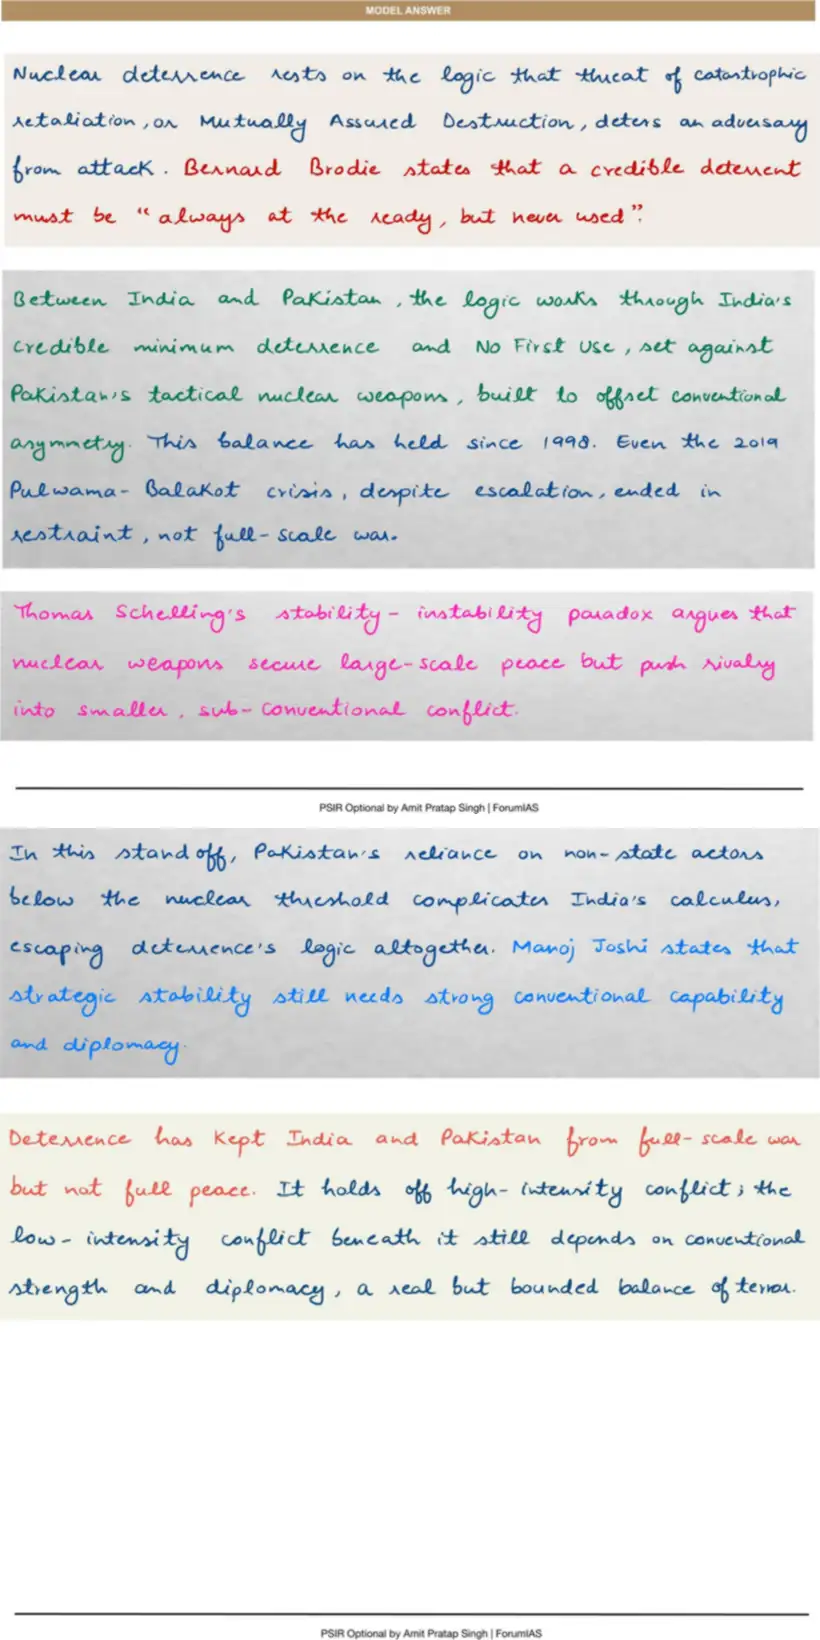 MODEL ANSWER
Nuclear deterrence rests on the logic that threat of catastrophic
retaliation, or Mutually Assured Destruction, deters an adversary
from attack. Bernard Brodie states that a credible deterrent
must be "always at the ready, but never used".
Between India and Pakistan, the logic works through India's
credible minimum deterrence and No First Use, set against
Pakistan's tactical nuclear weapons, built to offset conventional
asymmetry. This balance has held since 1998. Even the 2019
Pulwama- Balakot crisis, despite escalation, ended in
restraint, not full-scale war.
Thomas Schelling's stability- instability paradox argues that
nuclear weapons secure large-scale peace but push rivalry
into smaller, sub-conventional conflict.
PSIR Optional by Amit Pratap Singh | ForumIAS
In this standoff, Pakistan's reliance on non-state actors
below the nuclear threshold complicates India's calculus,
escaping deterrence's logic altogether. Manoj Joshi states that
strategic stability still needs strong conventional capability
and diplomacy.
Deterrence has kept India and Pakistan from full-scale war
but not full peace. It holds off high-intensity conflict; the
low-intensity conflict beneath it still depends on conventional
strength and diplomacy, a real but bounded balance of terror.
PSIR Optional by Amit Pratap Singh | ForumIAS